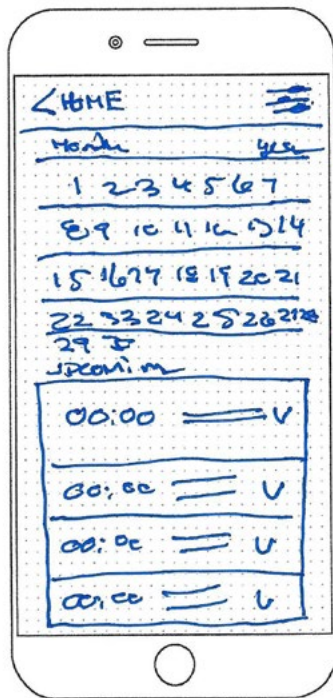 < HOME
Month year
1 2 3 4 5 6 7
8 9 10 11 12 13 14
15 16 17 18 19 20 21
22 33 24 25 26 27 28
29
UPCOMIN
00:00 V
00:00 V
00:00 V
00:00 V